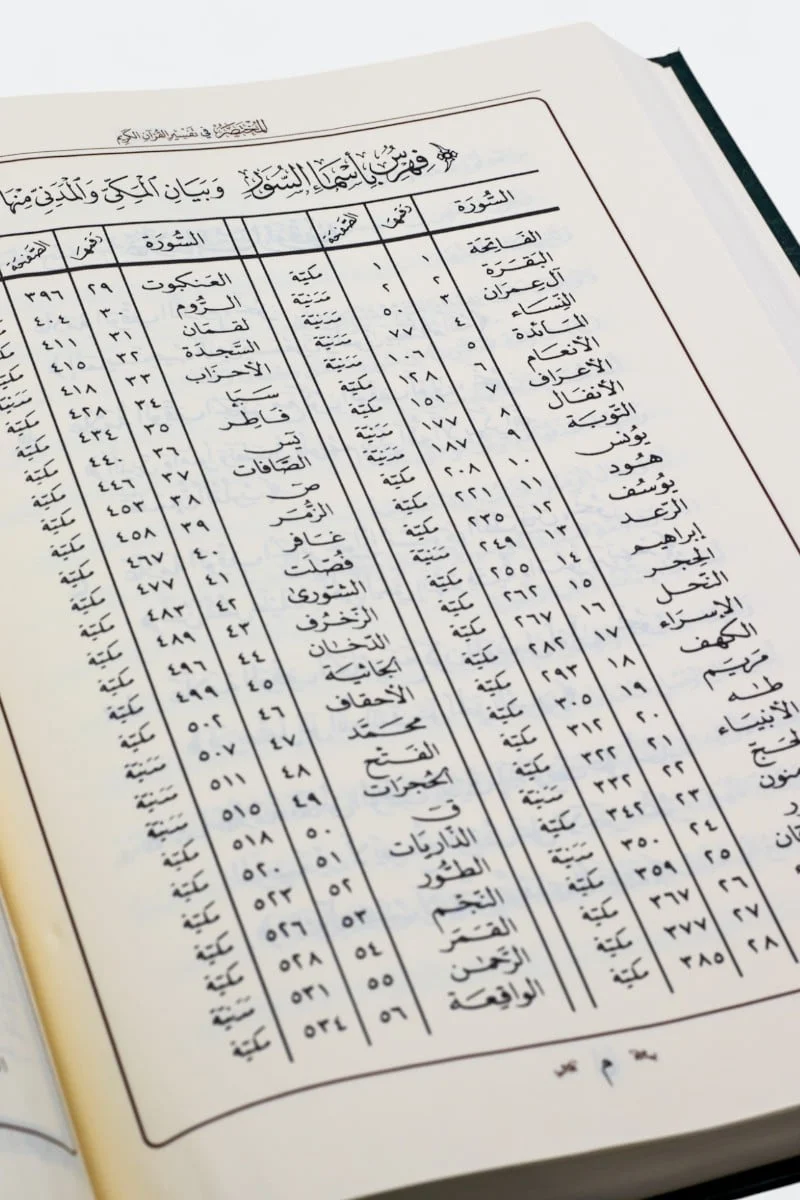 المختصر في تفسير القرآن الكريم
فِهْرِسٌ بِأَسْمَاءِ السُّوَرِ وَبَيَانِ الْمَكِّيِّ وَالْمَدَنِيِّ مِنْهَا
السُّورَة رقمها الصفحة
الفَاتِحَة ١ ١ مكيّة
البَقَرَة ٢ ٢ مَدَنيّة
آل عِمرَان ٣ ٥٠ مَدَنيّة
النِّسَاء ٤ ٧٧ مَدَنيّة
المَائدة ٥ ١٠٦ مَدَنيّة
الأنعَام ٦ ١٢٨ مكيّة
الأعرَاف ٧ ١٥١ مكيّة
الأنفَال ٨ ١٧٧ مَدَنيّة
التوبَة ٩ ١٨٧ مَدَنيّة
يُونُس ١٠ ٢٠٨ مكيّة
هُود ١١ ٢٢١ مكيّة
يُوسُف ١٢ ٢٣٥ مكيّة
الرّعد ١٣ ٢٤٩ مَدَنيّة
إبراهيم ١٤ ٢٥٥ مكيّة
الحِجر ١٥ ٢٦٢ مكيّة
النّحل ١٦ ٢٦٧ مكيّة
الإسرَاء ١٧ ٢٨٢ مكيّة
الكهف ١٨ ٢٩٣ مكيّة
مَريَم ١٩ ٣٠٥ مكيّة
طه ٢٠ ٣١٢ مكيّة
الأنبيَاء ٢١ ٣٢٢ مكيّة
الحج ٢٢ ٣٣٢ مَدَنيّة
٢٣ ٣٤٢ مكيّة
٢٤ ٣٥٠ مَدَنيّة
٢٥ ٣٥٩ مكيّة
٢٦ ٣٦٧ مكيّة
٢٧ ٣٧٧ مكيّة
٢٨ ٣٨٥ مكيّة
السُّورَة رقمها الصفحة
العَنكبوت ٢٩ ٣٩٦
الرُّوم ٣٠ ٤٠٤
لقمَان ٣١ ٤١١
السَّجدَة ٣٢ ٤١٥
الأحزَاب ٣٣ ٤١٨ مَدَنيّة
سَبَإ ٣٤ ٤٢٨ مكيّة
فَاطِر ٣٥ ٤٣٤ مكيّة
يسٓ ٣٦ ٤٤٠ مكيّة
الصَّافات ٣٧ ٤٤٦ مكيّة
صٓ ٣٨ ٤٥٣ مكيّة
الزُّمَر ٣٩ ٤٥٨ مكيّة
غَافر ٤٠ ٤٦٧ مكيّة
فُصّلَت ٤١ ٤٧٧ مكيّة
الشّورى ٤٢ ٤٨٣ مكيّة
الزّخرُف ٤٣ ٤٨٩ مكيّة
الدّخان ٤٤ ٤٩٦ مكيّة
الجَاثية ٤٥ ٤٩٩ مكيّة
الأحقاف ٤٦ ٥٠٢ مكيّة
محَمَّد ٤٧ ٥٠٧ مَدَنيّة
الفَتْح ٤٨ ٥١١ مَدَنيّة
الحُجرَات ٤٩ ٥١٥ مَدَنيّة
قٓ ٥٠ ٥١٨ مكيّة
الذّاريَات ٥١ ٥٢٠ مكيّة
الطُّور ٥٢ ٥٢٣ مكيّة
النّجْم ٥٣ ٥٢٦ مكيّة
القَمَر ٥٤ ٥٢٨ مكيّة
الرَّحمٰن ٥٥ ٥٣١ مَدَنيّة
الوَاقِعَة ٥٦ ٥٣٤ مكيّة
م